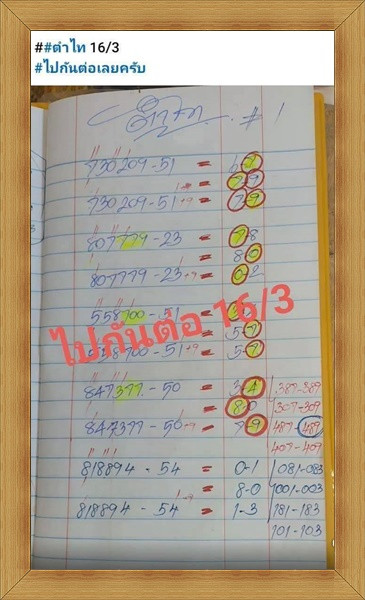 ##ดำไท 16/3
#ไปกันต่อเลยครับ
ดำไท #1
730209-51 =
= 79
730209-51+9 = 79
807779-23 = 78
= 80
807779-23+9 = 0-2
558700-51 =
= 5-7
558700-51+9 = 5-7
ไปกันต่อ 16/3
847377-50 = 3-4 387-389
= 80 307-309
847377-50+9 = 79 487-489
407-409
818894-54 = 0-1 081-083
= 8-0 001-003
818894-54 = 1-3 181-183
101-103